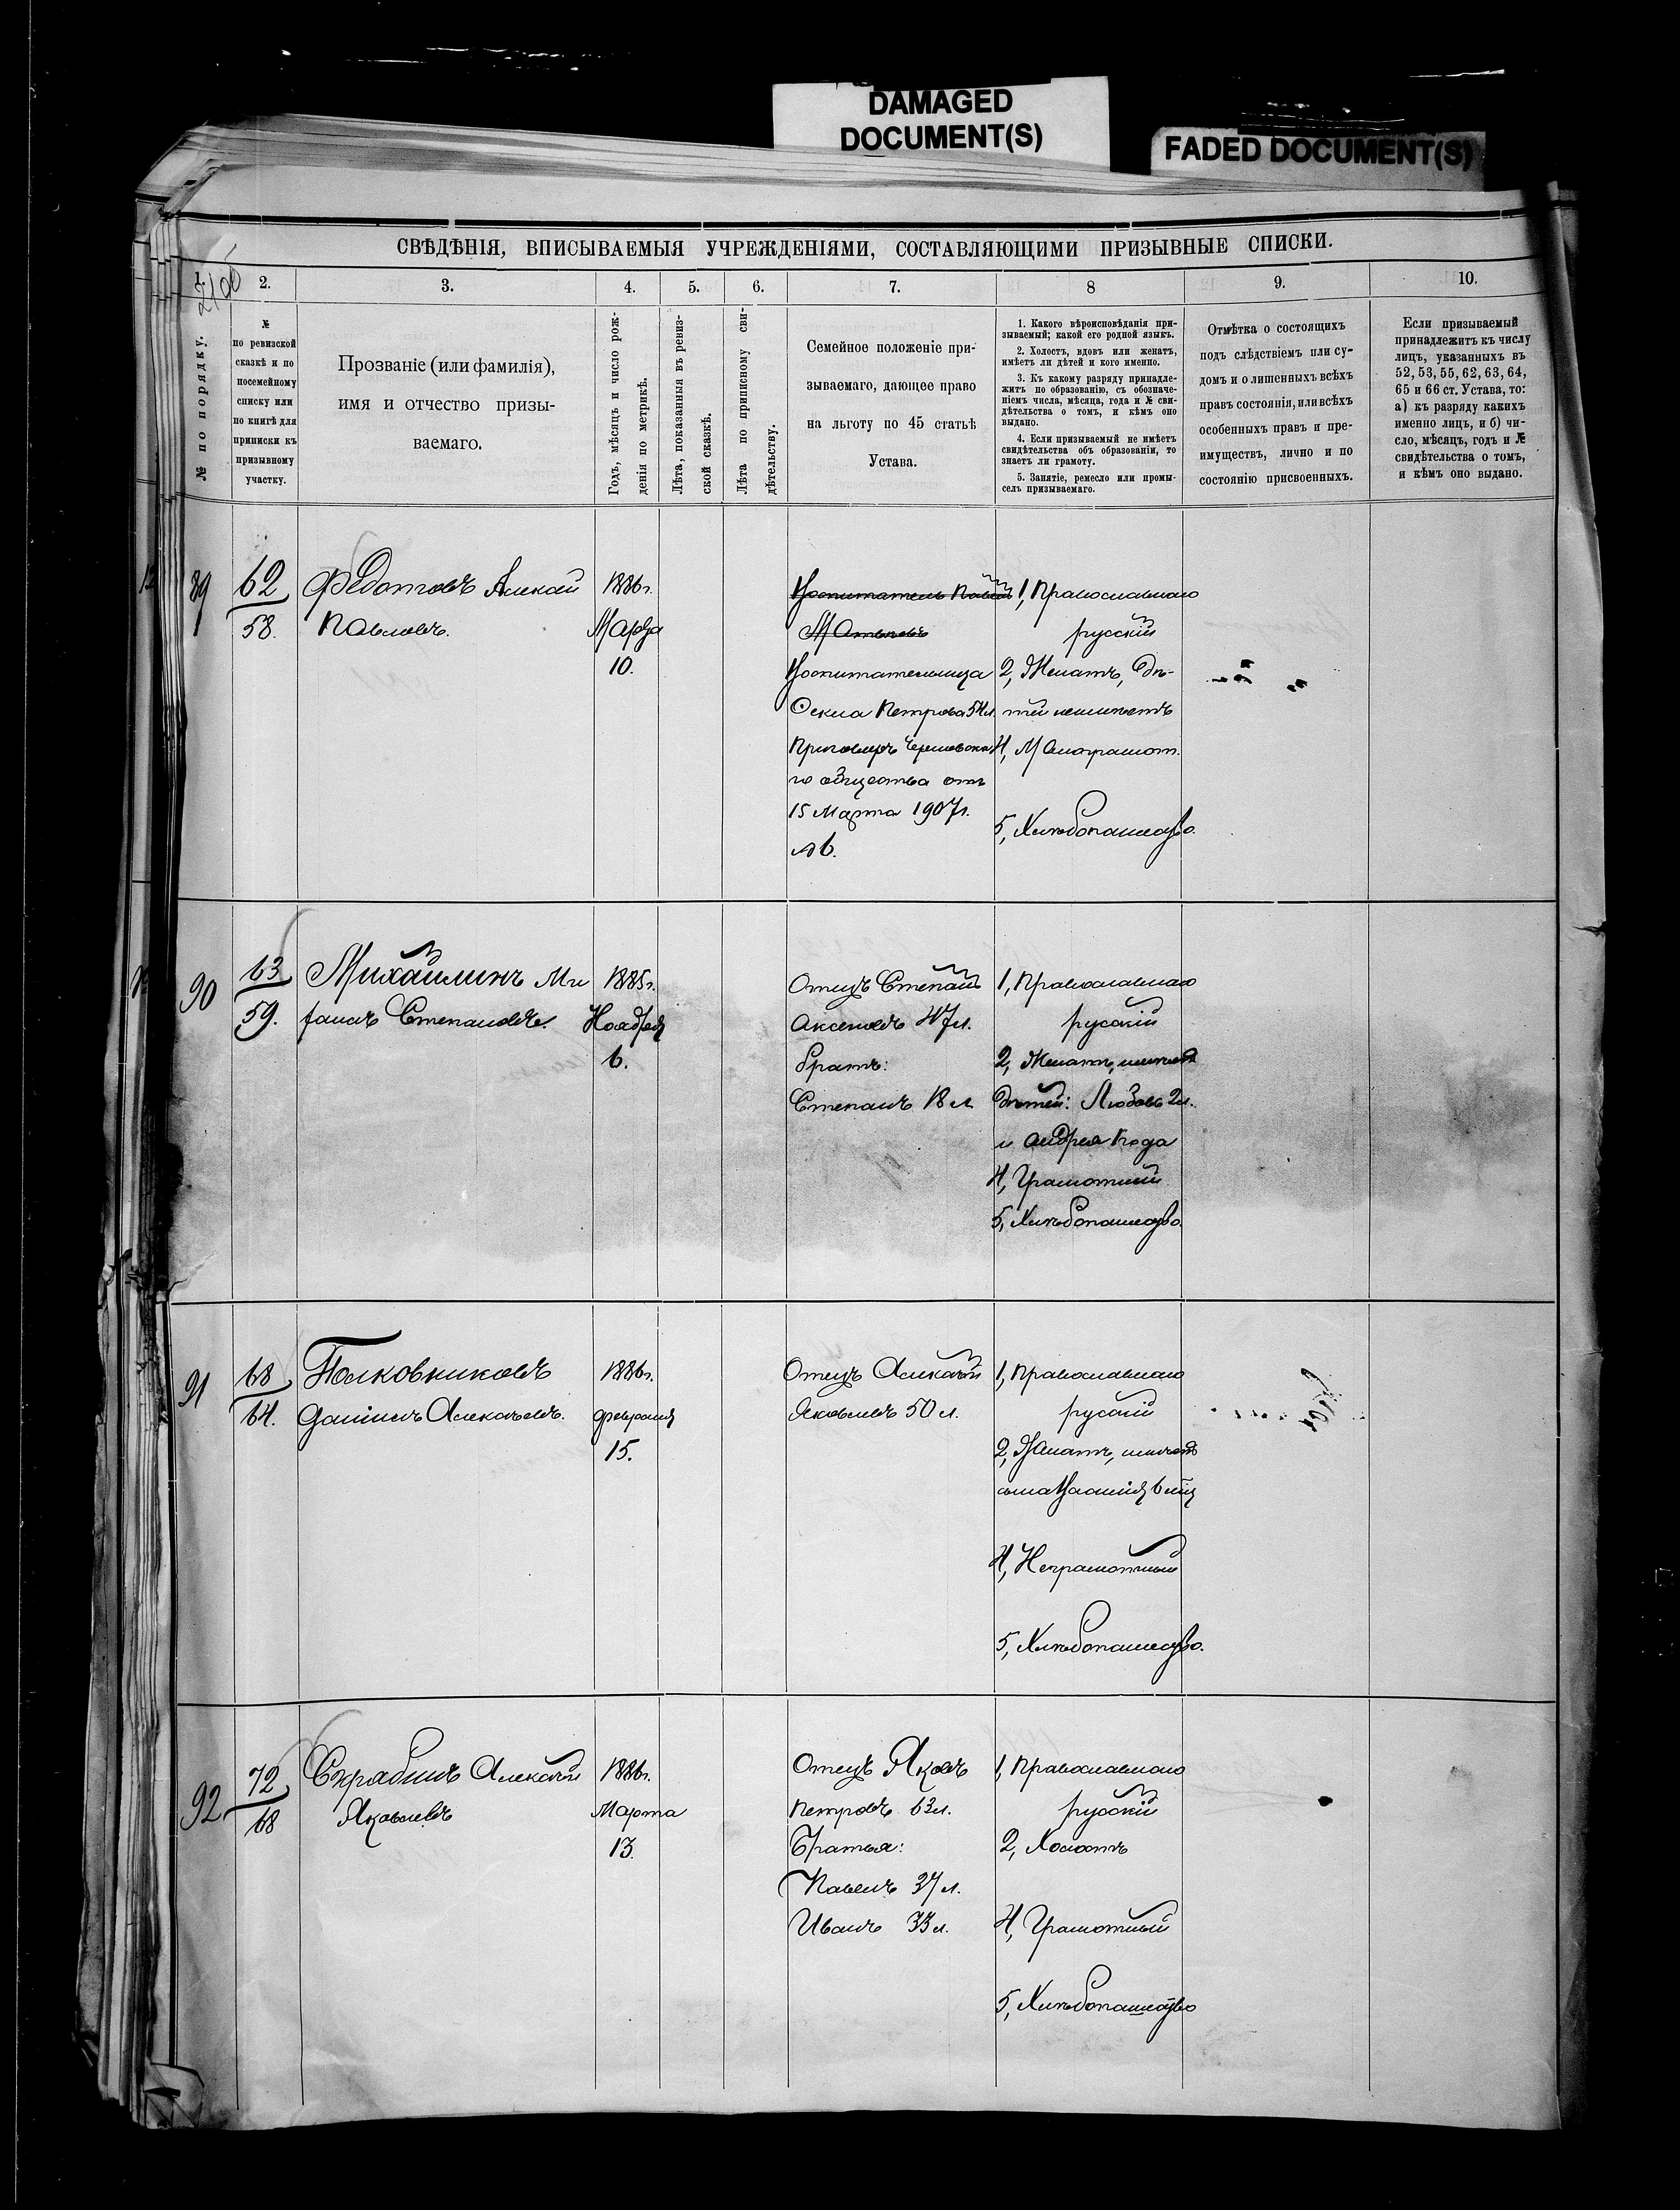 DAMAGED
DOCUMENT(S)
FADED DOCUMENT(S)
СВѢДѢНІЯ, ВПИСЫВАЕМЫЯ УЧРЕЖДЕНІЯМИ, СОСТАВЛЯЮЩИМИ ПРИЗЫВНЫЕ СПИСКИ.
1.
2.
3.
4.
5.
6.
7.
8
9.
10.
№ по порядку.
№
по ревизской
сказкѣ и по
посемейному
списку или
по книгѣ для
приписки къ
призывному
участку.
Прозваніе (или фамилія),
имя и отчество призы-
ваемаго.
Годъ, мѣсяцъ и число рож-
денія по метрикѣ.
Лѣта, показанныя въ ревиз-
ской сказкѣ.
Лѣта по приписному сви-
дѣтельству.
Семейное положеніе при-
зываемаго, дающее право
на льготу по 45 статьѣ
Устава.
1. Какого вѣроисповѣданія при-
зываемый; какой его родной языкъ.
2. Холостъ, вдовъ или женатъ,
имѣетъ ли дѣтей и кого именно.
3. Къ какому разряду принадле-
житъ по образованію, съ обозначе-
ніемъ числа, мѣсяца, года и № сви-
дѣтельства о томъ, и кѣмъ оно
выдано.
4. Если призываемый не имѣетъ
свидѣтельства объ образованіи, то
знаетъ ли грамоту.
5. Занятіе, ремесло или промы-
селъ призываемаго.
Отмѣтка о состоящихъ
подъ слѣдствіемъ или су-
домъ и о лишенныхъ всѣхъ
правъ состоянія, или всѣхъ
особенныхъ правъ и пре-
имуществъ, лично и по
состоянію присвоенныхъ.
Если призываемый
принадлежитъ къ числу
лицъ, указанныхъ въ
52, 53, 55, 62, 63, 64,
65 и 66 ст. Устава, то:
а) къ разряду какихъ
именно лицъ, и б) чи-
сло, мѣсяцъ, годъ и №
свидѣтельства о томъ,
и кѣмъ оно выдано.
89
62
58.
Федотовъ Алексѣй
Павловъ.
1886г.
Марта
10.
Воспитатель Павелъ
Матвѣевъ
Воспитательница
Фекла Петрова 54 л.
Приговоръ
го общества отъ
15 Марта 1907г.
№ 6.
1, Православнаго
русскій
2, Женатъ, дѣ-
тей неимѣетъ
4, Малограмот.
5, Хлѣбопашество.
90
63
59.
Михайлинъ Ми
фанъ Степановъ.
1885г.
Ноября
6.
Отецъ Степанъ
Аксеновъ 47 л.
братъ:
Степанъ 18 л
1, Православнаго
русскій
2, Женатъ, имѣетъ
дѣтей: Любовь 2 л.
и Андрея 1 года
4, Грамотный
5, Хлѣбопашество.
91
68
64.
Полковниковъ
Даніилъ Алексѣевъ.
1886г.
Февраля
15.
Отецъ Алексѣй
Яковлевъ 50 л.
1, Православнаго
русскій
2, Женатъ, имѣетъ
сына Василія 6 мѣц
4, Неграмотный
5, Хлѣбопашество.
92
72
68
Скрабинъ Алексѣй
Яковлевъ
1886г.
Марта
13.
Отецъ Яковъ
Петровъ 63 л.
Братья:
Павелъ 37 л.
Иванъ 33 л.
1, Православнаго
русскій
2, Холостъ
4, Грамотный
5, Хлѣбопашество